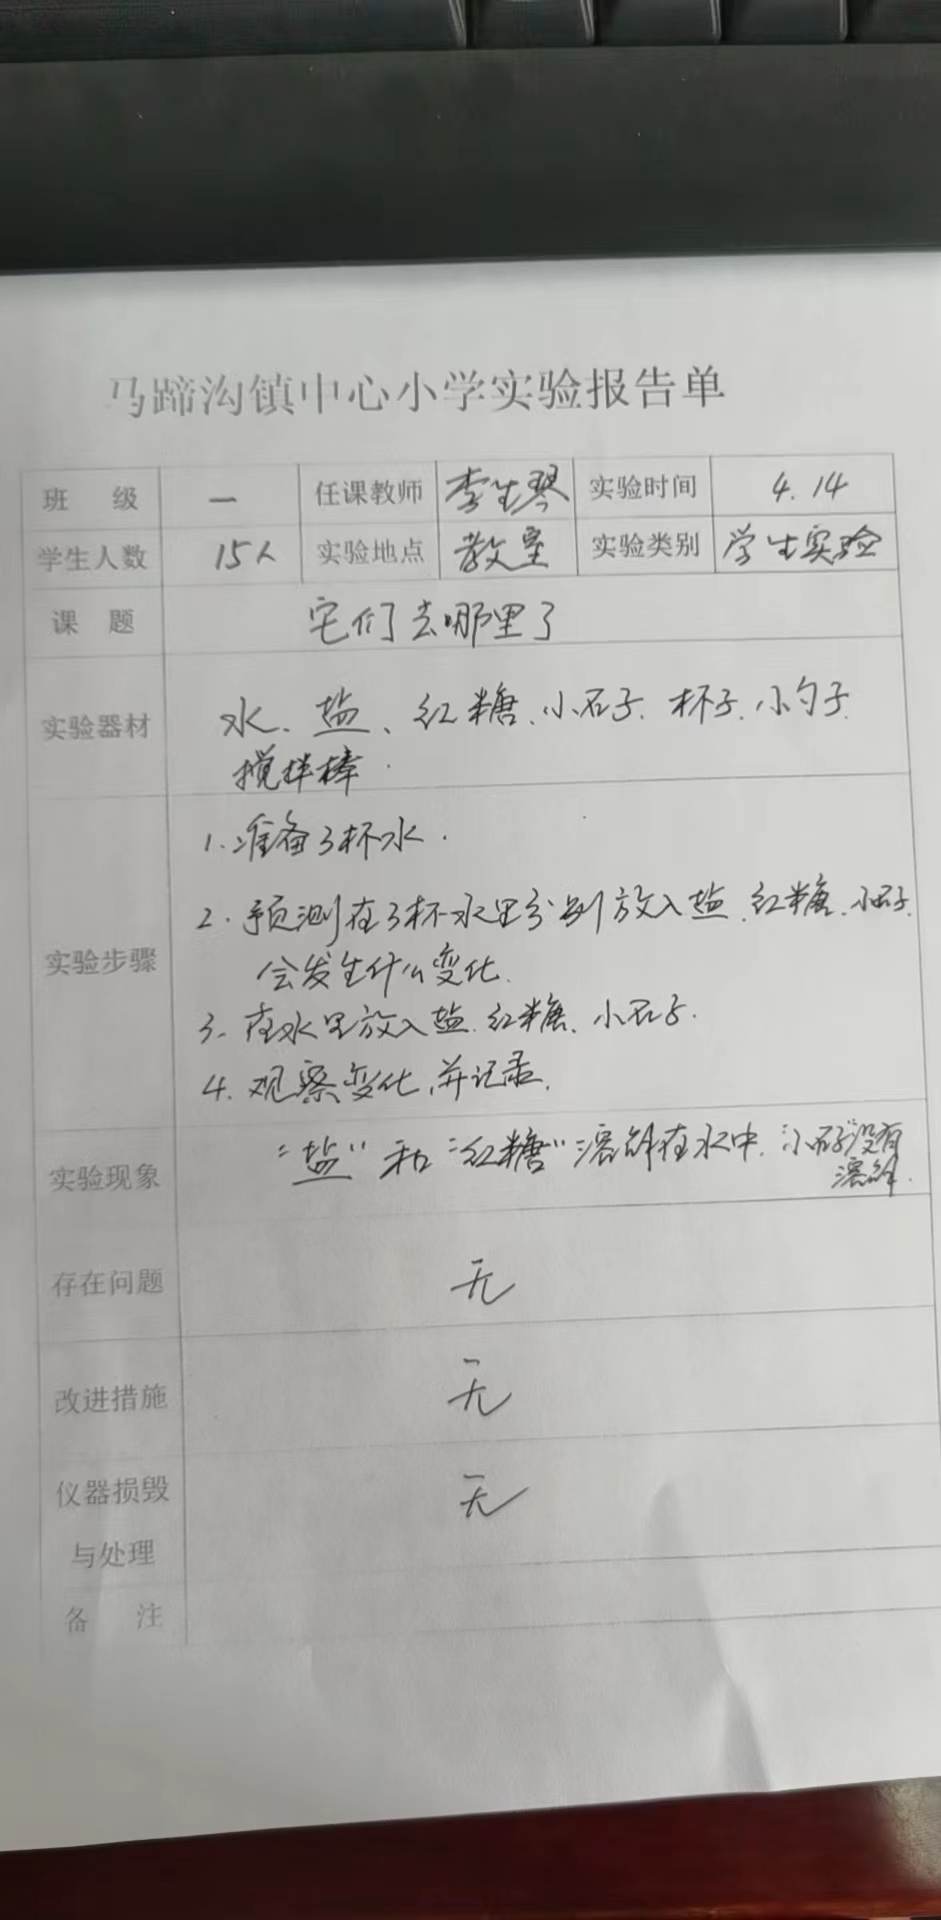 马蹄沟镇中心小学实验报告单
班 级 一 任课教师 李生琴 实验时间 4.14
学生人数 15人 实验地点 教室 实验类别 学生实验
课 题 它们去哪里了
实验器材 水、盐、红糖、小石子、杯子、小勺子、
搅拌棒.
实验步骤
1.准备3杯水.
2.预测在3杯水里分别放入盐、红糖、小石子,
会发生什么变化.
3.在水里放入盐、红糖、小石子.
4.观察变化,并记录.
实验现象 “盐”和“红糖”溶解在水中.“小石子”没有
溶解.
存在问题 无
改进措施 无
仪器损毁 无
与处理
备 注